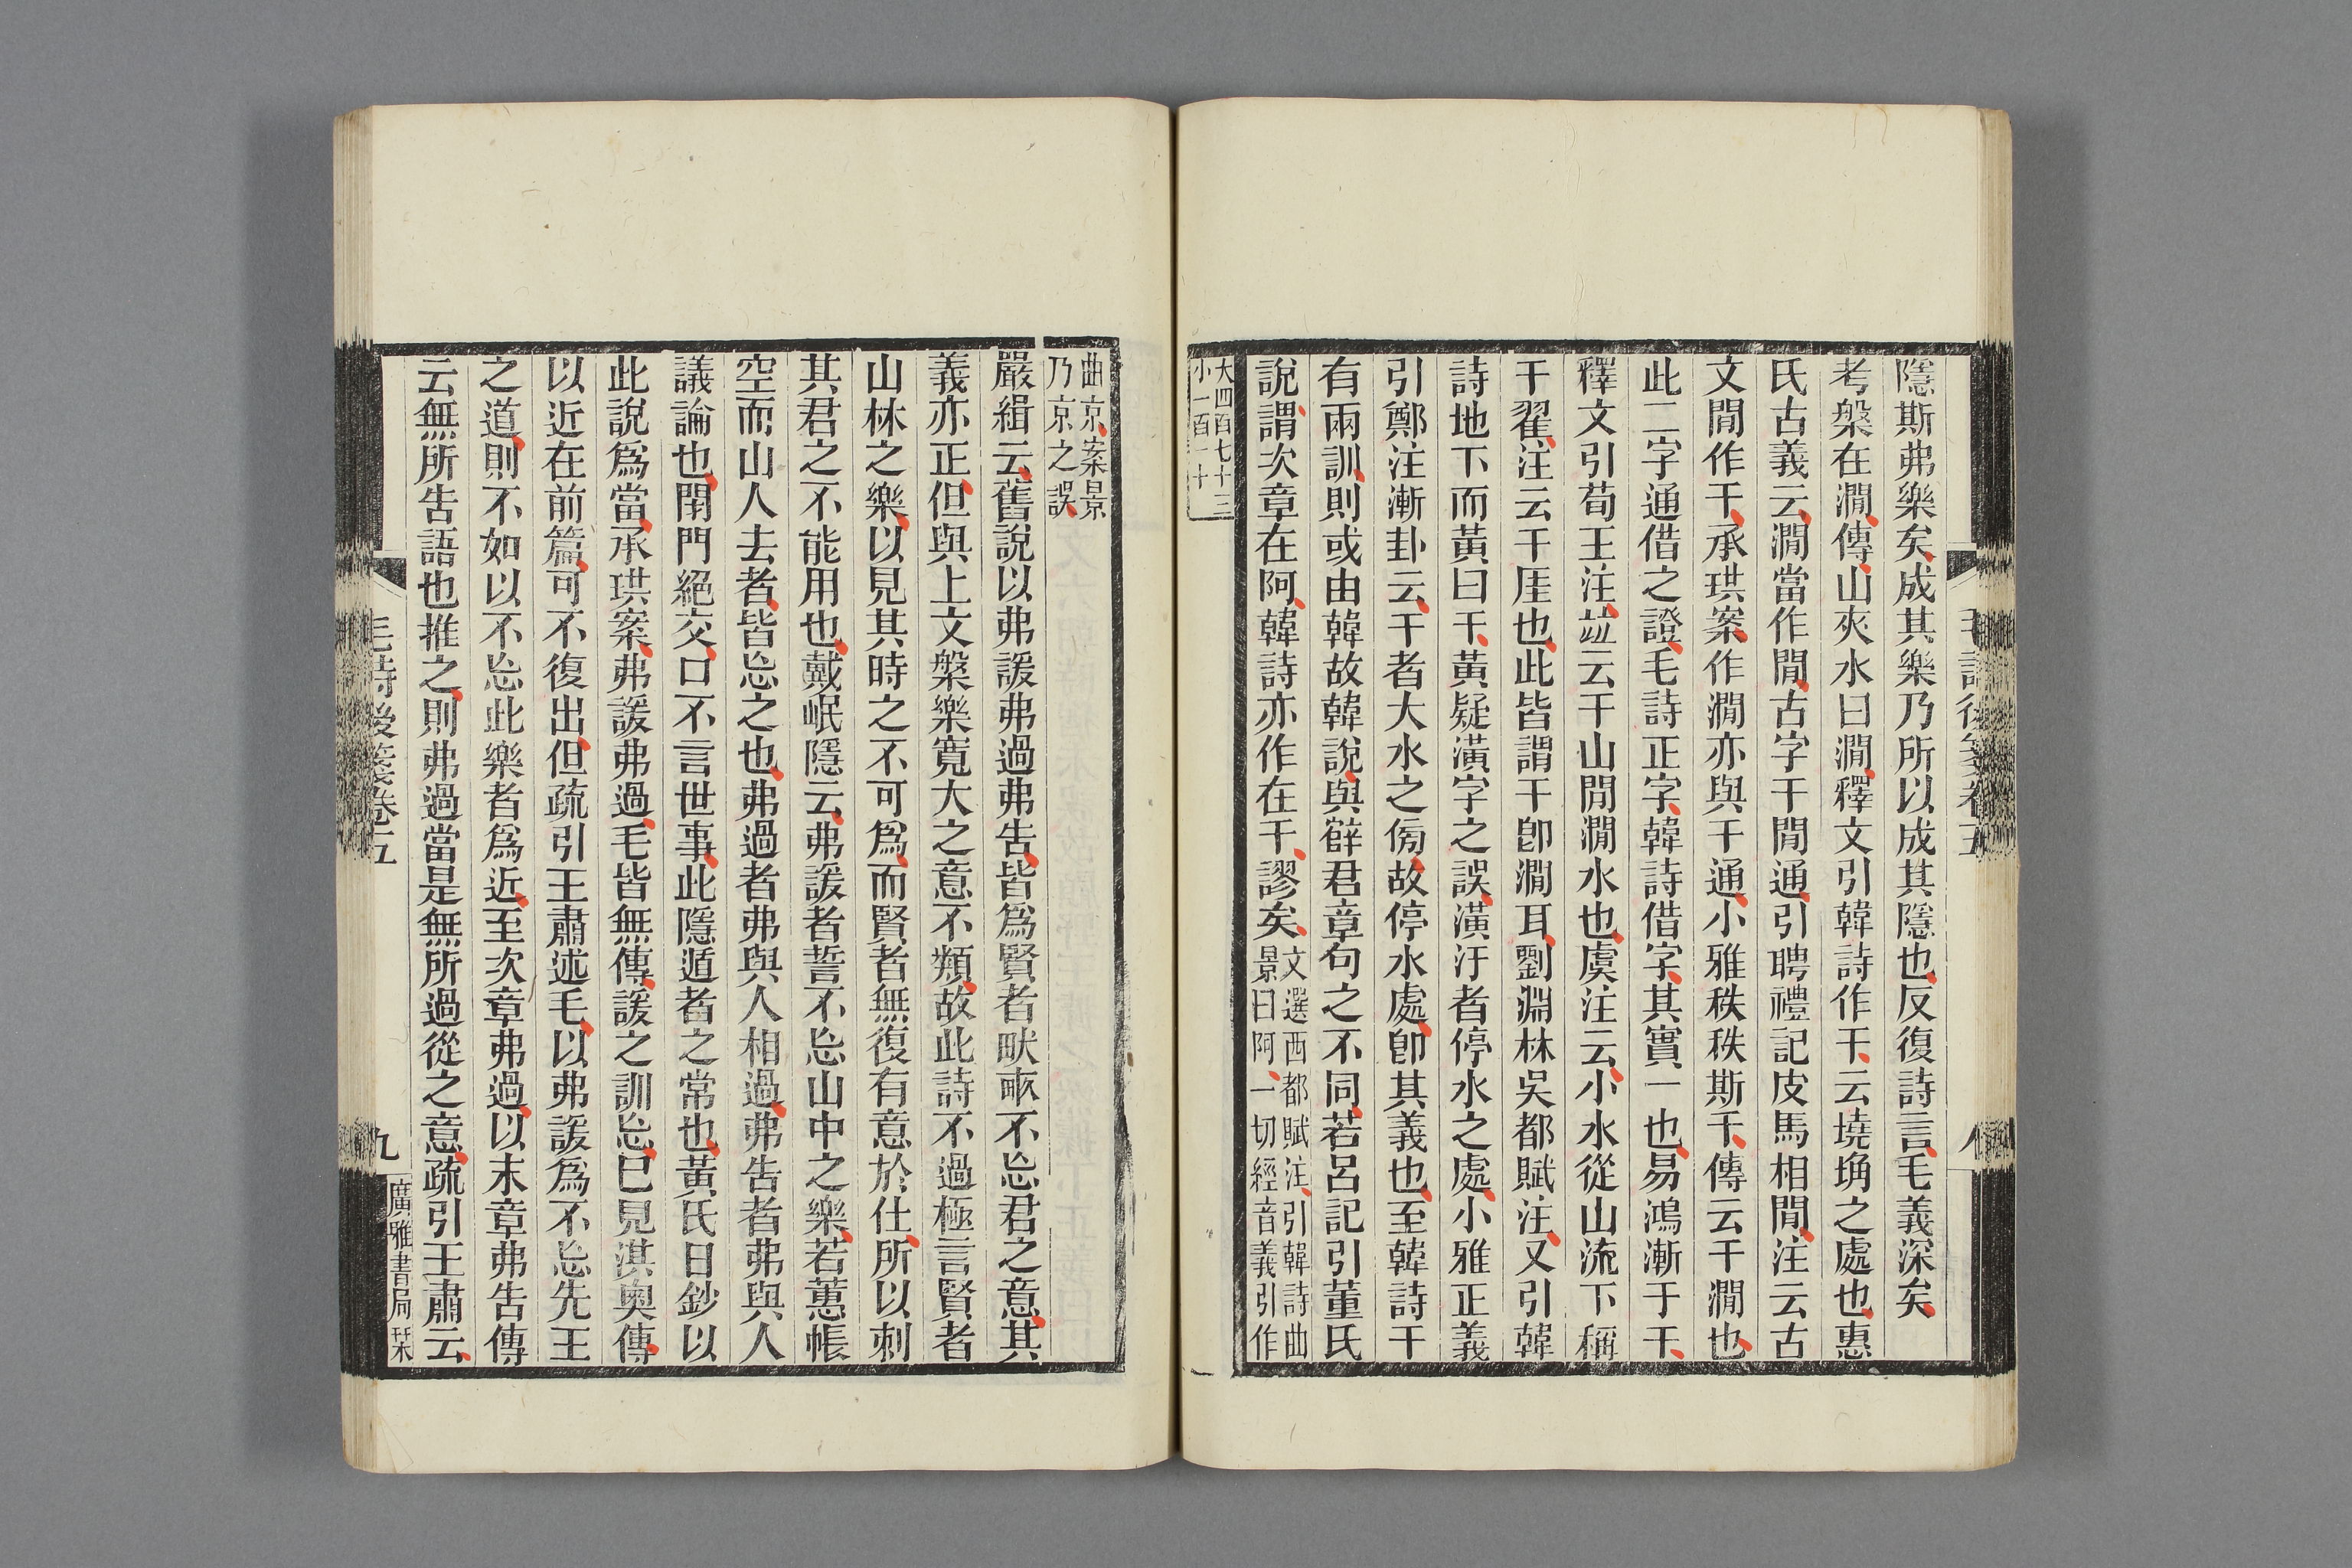 隱斯弗樂矣成其樂乃所以成其隱也反復詩言毛義深矣
考槃在澗傳山夾水曰澗釋文引韓詩作干云墝埆之處也惠
氏古義云澗當作閒古字干閒通引聘禮記皮馬相閒注云古
文閒作干承珙案作澗亦與干通小雅秩秩斯干傳云干澗也
此二字通借之證毛詩正字韓詩借字其實一也易鴻漸于干
釋文引荀王注竝云干山閒澗水也虞注云小水從山流下稱
干翟注云干厓也此皆謂干卽澗耳劉淵林吳都賦注又引韓
詩地下而黃曰干黃疑潢字之誤潢汙者停水之處小雅正義
引鄭注漸卦云干者大水之傍故停水處卽其義也至韓詩干
有兩訓則或由韓故韓說與薛君章句之不同若呂記引董氏
說謂次章在阿韓詩亦作在干謬矣
文選西都賦注引韓詩曲
景曰阿一切經音義引作
大四百七十三
小一百一十
毛詩後箋卷五
八
曲京案景
乃京之誤
嚴緝云舊說以弗諼弗過弗告皆爲賢者畎畝不忘君之意其
義亦正但與上文槃樂寬大之意不類故此詩不過極言賢者
山林之樂以見其時之不可爲而賢者無復有意於仕所以刺
其君之不能用也戴岷隱云弗諼者誓不忘山中之樂若蕙帳
空而山人去者皆忘之也弗過者弗與人相過弗告者弗與人
議論也閉門絕交口不言世事此隱遁者之常也黃氏日鈔以
此說爲當承珙案弗諼弗過毛皆無傳諼之訓忘已見淇奧傳
以近在前篇可不復出但疏引王肅述毛以弗諼爲不忘先王
之道則不如以不忘此樂者爲近至次章弗過以末章弗告傳
云無所告語也推之則弗過當是無所過從之意疏引王肅云
毛詩後箋卷五
九
廣雅書局栞